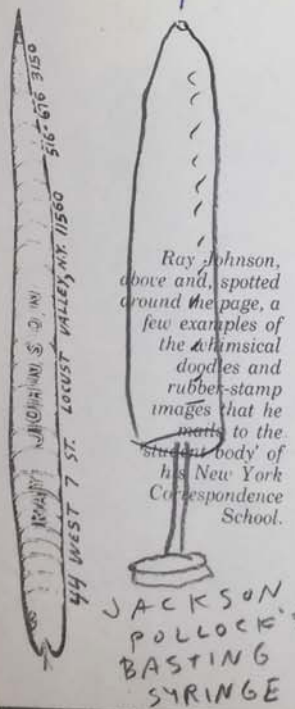 RAY JOHNSON
44 WEST 7 ST. LOCUST VALLEY, N.Y. 11560
516-676 3150
Ray Johnson,
above and, spotted
around the page, a
few examples of
the whimsical
doodles and
rubber-stamp
images that he
mails to the
'student body' of
his New York
Correspondence
School.
JACKSON
POLLOCK'S
BASTING
SYRINGE